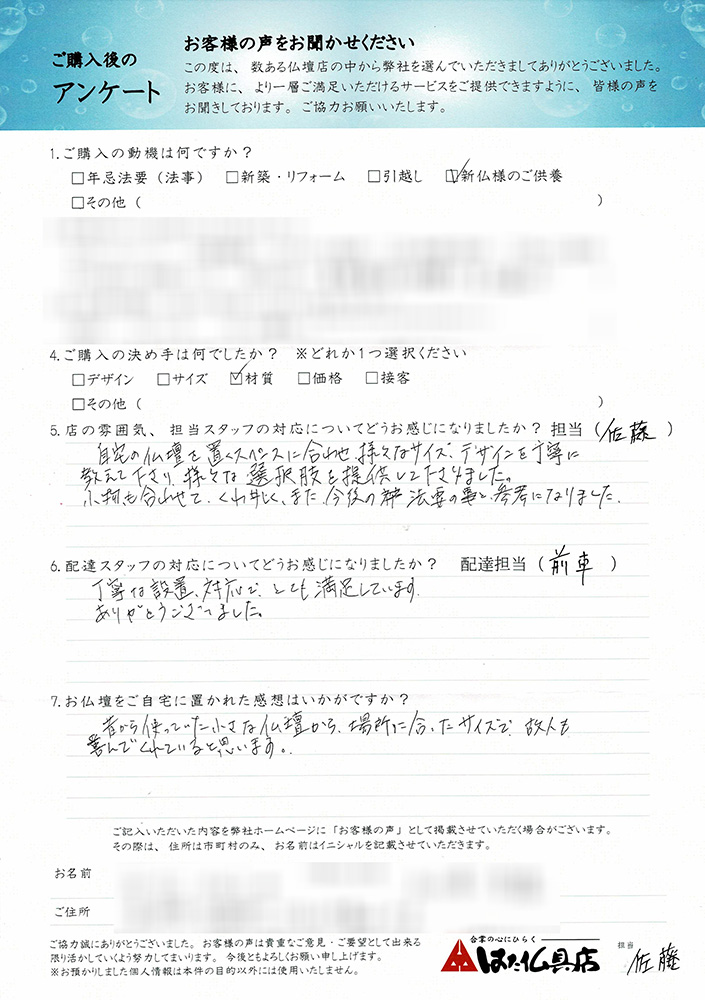 ご購入後の
アンケート
お客様の声をお聞かせください
この度は、数ある仏壇店の中から弊社を選んでいただきましてありがとうございました。
お客様に、より一層ご満足いただけるサービスをご提供できますように、皆様の声を
お聞きしております。ご協力お願いいたします。
1.ご購入の動機は何ですか？
□年忌法要（法事） □新築・リフォーム □引越し ☑新仏様のご供養
□その他（ ）
4.ご購入の決め手は何でしたか？ ※どれか1つ選択ください
□デザイン □サイズ ☑材質 □価格 □接客
□その他（ ）
5.店の雰囲気、担当スタッフの対応についてどうお感じになりましたか？ 担当（佐藤）
自宅の仏壇を置くスペースに合わせ、様々なサイズ、デザインを丁寧に
教えて下さり、様々な選択肢を提供して下さいました。
小物も合わせて、くわしく、また、今後の 法要の事も参考になりました。
6.配達スタッフの対応についてどうお感じになりましたか？ 配達担当（前車）
丁寧な設置、対応で、とても満足しています。
ありがとうございました。
7.お仏壇をご自宅に置かれた感想はいかがですか？
昔から使っていた小さな仏壇から、場所に合ったサイズで、故人も
喜んでくれていると思います。
ご記入いただいた内容を弊社ホームページに「お客様の声」として掲載させていただく場合がございます。
その際は、住所は市町村のみ、お名前はイニシャルを記載させていただきます。
お名前
ご住所
ご協力誠にありがとうございました。お客様の声は貴重なご意見・ご要望として出来る
限り活かしていくよう努力してまいります。今後ともよろしくお願い申し上げます。
※お預かりしました個人情報は本件の目的以外には使用いたしません。
合掌の心にひらく
はた仏具店
担当 佐藤